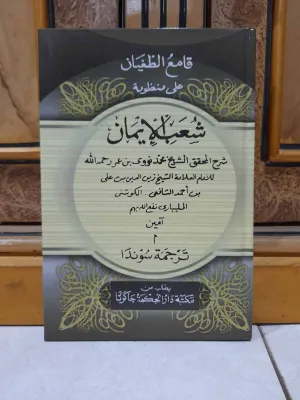 قامع الطغيان
على منظومة
شعب الإيمان
شرح المحقق الشيخ محمد نووي بن عمر رحمه الله
للامام العلامة الشيخ زين الدين بن علي
بن أحمد الشافعي الكوشني
المليباري نفع الله بهم
آمين
م
ترجمة سوندا
يطلب من
مكتبة دار الحكمة جاكرتا